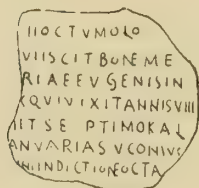 IIOCTVMOLO
VIISCITBONEME
RIAEEVGENISIN
XQVIVIXITANNISVIII
IITSE PTIMOKAL
ANVARIASVCONIVS
INDICTIONEOCTA